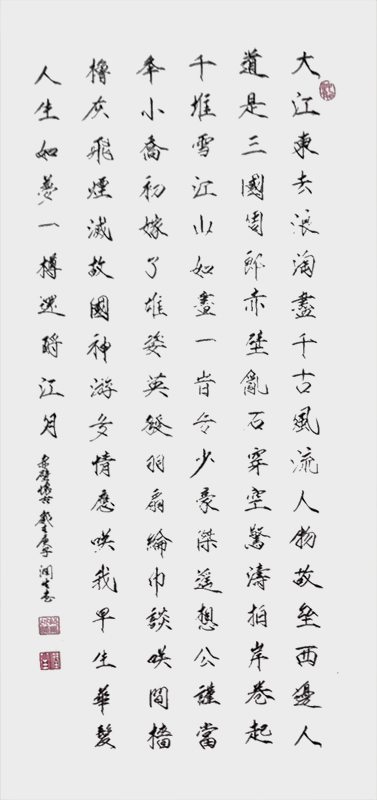 大江東去浪淘盡千古風流人物故壘西邊人
道是三國周郎赤壁亂石穿空驚濤拍岸卷起
千堆雪江山如畫一旹多少豪傑遙想公謹當
年小喬初嫁了雄姿英發羽扇綸巾談咲間檣
櫓灰飛煙滅故國神游多情應咲我早生華髮
人生如夢一樽還酹江月
赤壁懷古 歲在庚子 潤生書